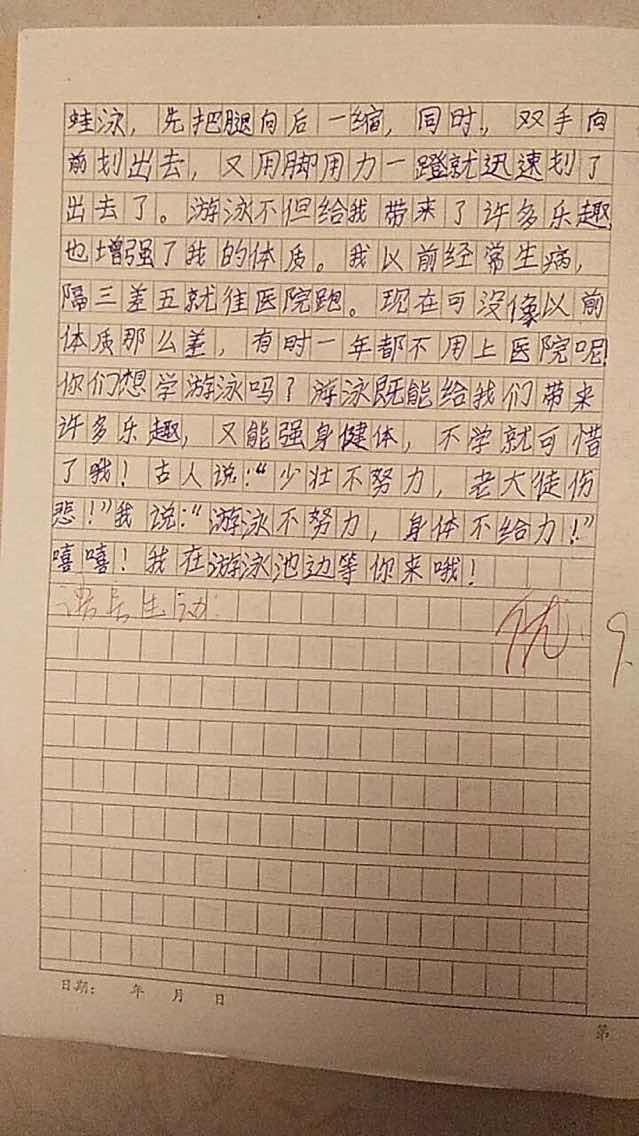 蛙泳，先把腿向后一缩，同时，双手向
前划出去，又用脚用力一蹬就迅速划了
出去了。游泳不但给我带来了许多乐趣，
也增强了我的体质。我以前经常生病，
隔三差五就往医院跑。现在可没像以前
体质那么差，有时一年都不用上医院呢！
你们想学游泳吗？游泳既能给我们带来
许多乐趣，又能强身健体，不学就可惜
了哦！古人说：“少壮不努力，老大徒伤
悲！”我说：“游泳不努力，身体不给力！”
嘻嘻！我在游泳池边等你来哦！
生动
优 9.
日期： 年 月 日
第